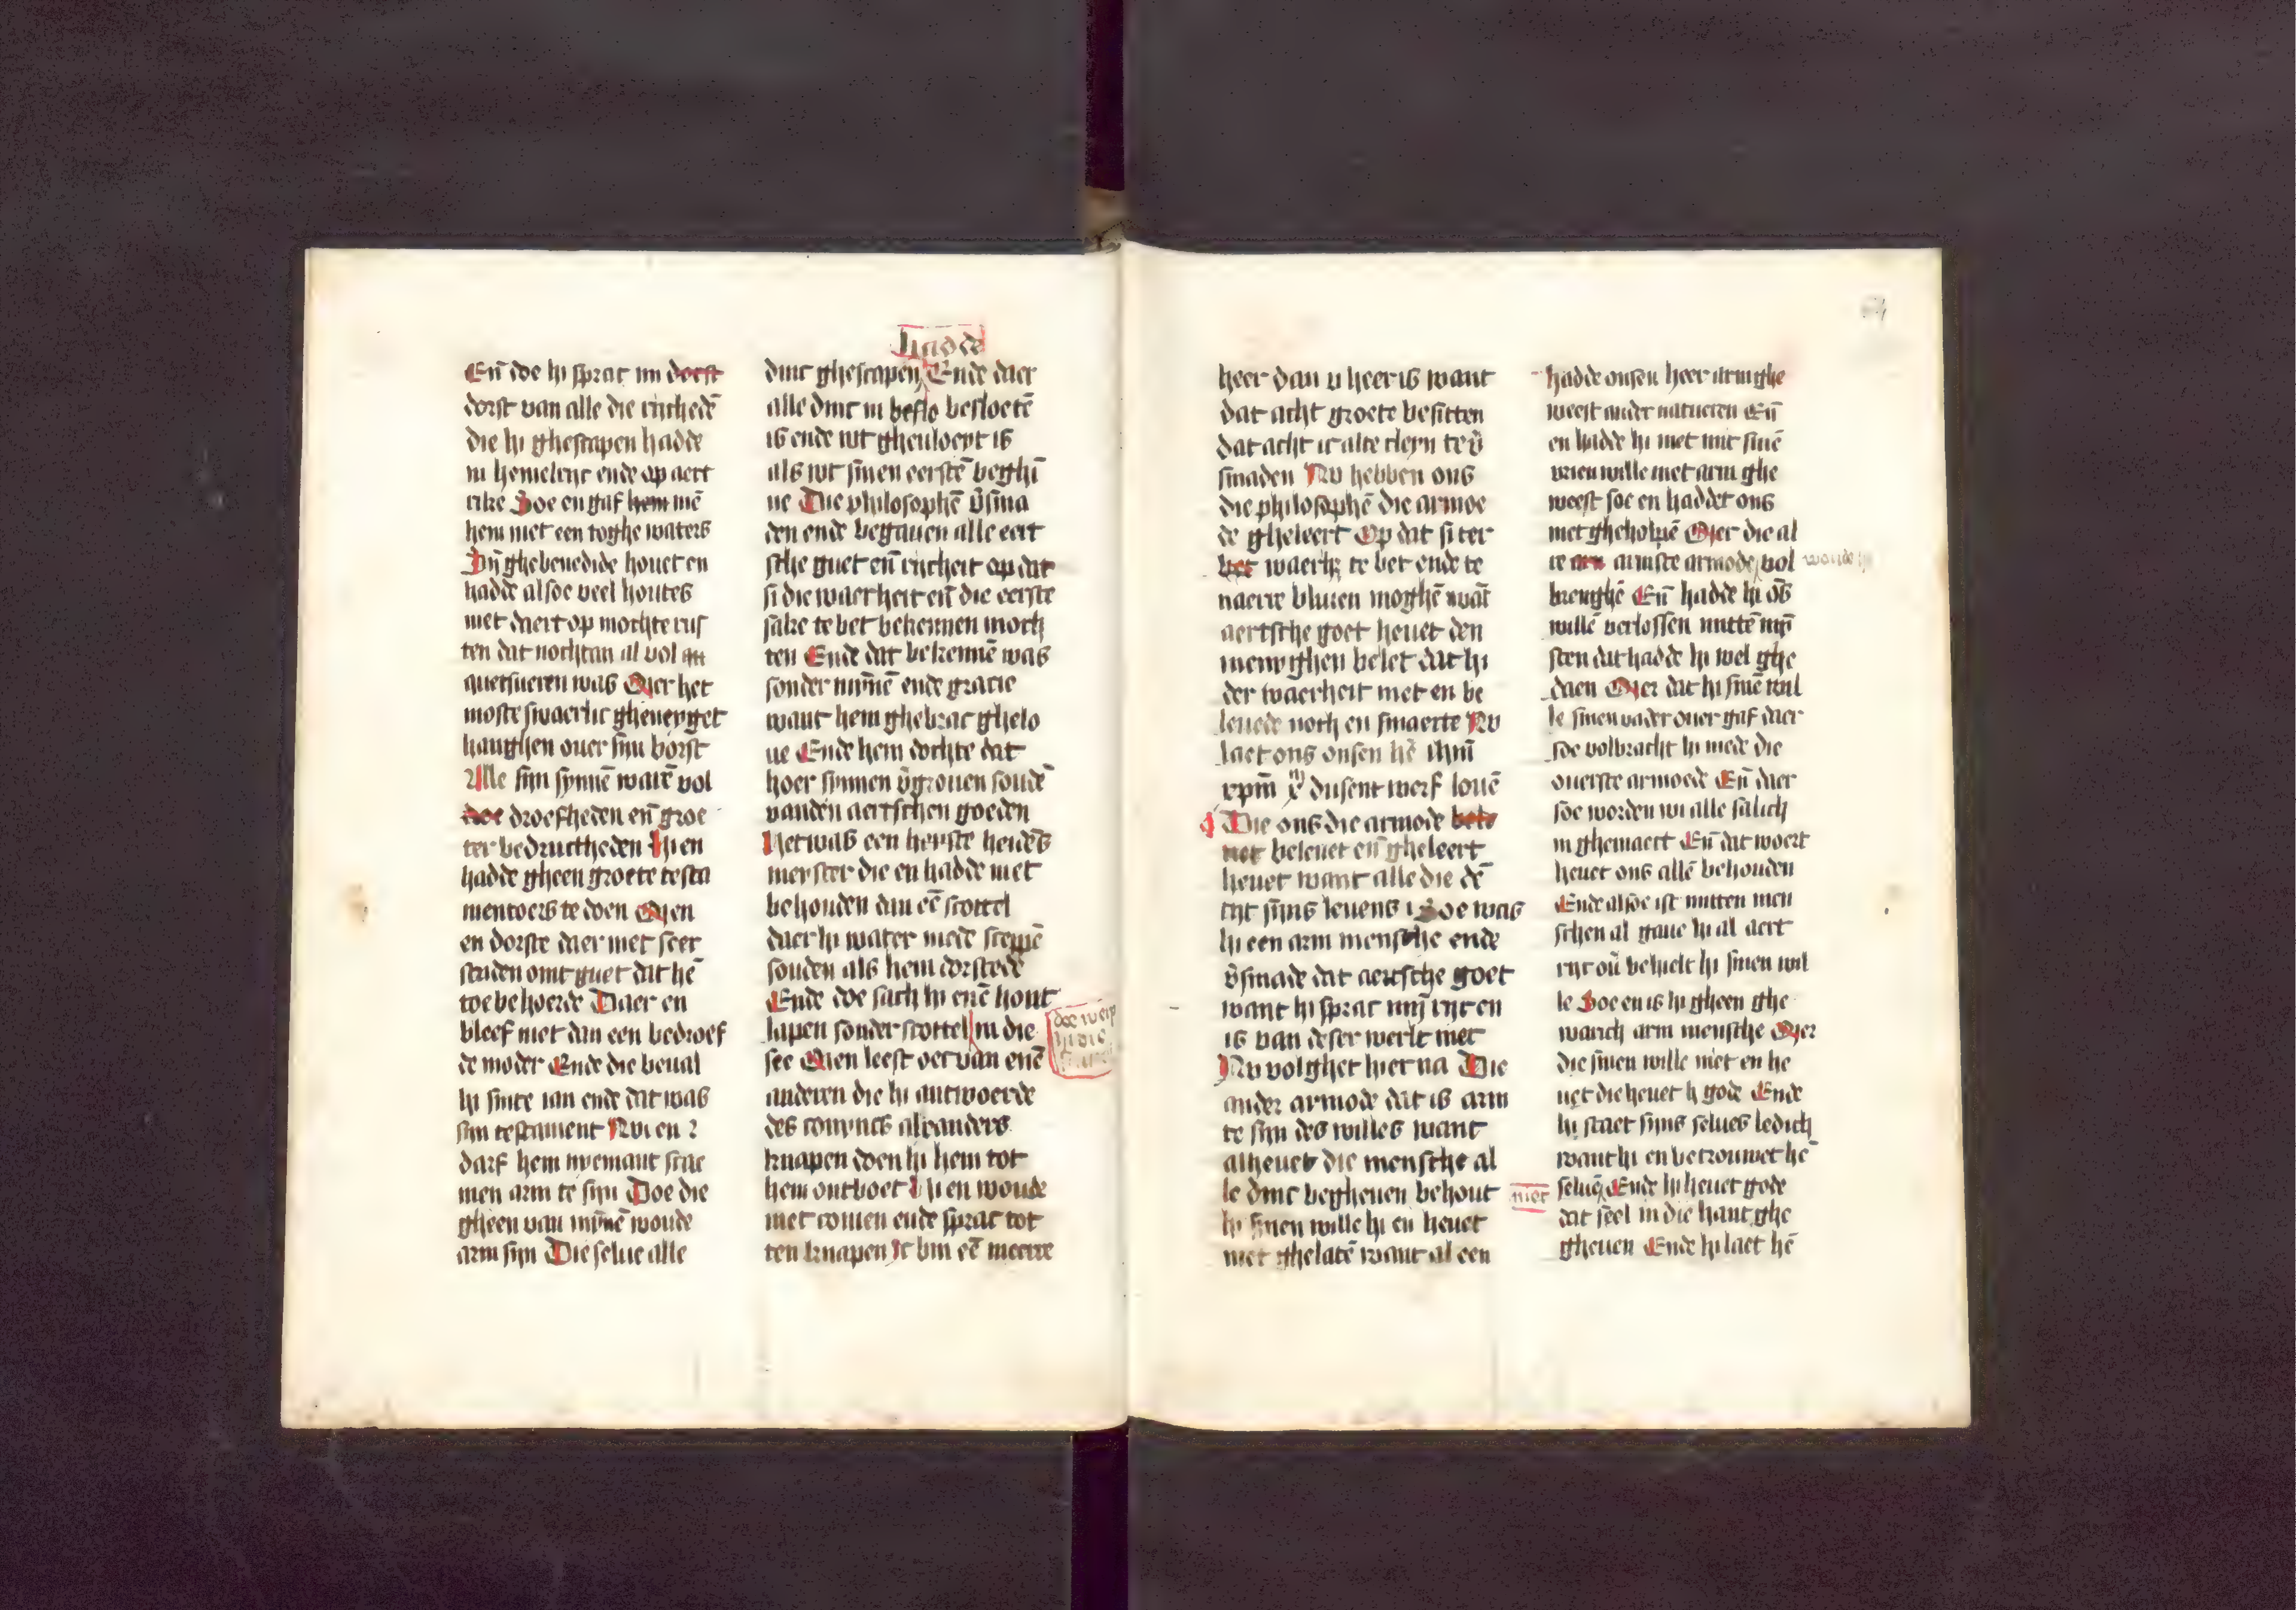 hadde
Eñ doe hi sprac mi dorst
dorst van alle die rijchedē
die hi ghescapen hadde
in hemelrijc ende op aert
rike Soe en gaf hem mē
hem niet een toghe waters
Sijn ghebenedide houet en
hadde alsoe veel houtes
niet daert op mochte rus
ten dat nochtan al vol
quetsueren was Mer het
moste swaerlic gheneyget
hanghen ouer sijn borst
Alle sijn synnē warē vol
droefheden eñ groe
ter bedructheden Hi en
hadde gheen groete testa
mentoers te doen Men
en dorste daer niet seer
striden omt guet dat hē
toe behoerde Daer en
bleef niet dan een bedroef
de moder Ende die beual
hi sinte ian ende dat was
sijn testament Nv en
darf hem nyemant scae
men arm te sijn Doe die
gheen van mȳnē woude
arm sijn Die selue alle
dinc ghescapen Ende daer
alle dinc in beslo besloetē
is ende wt gheuloeyt is
als wt sinen eerstē beghī
ne Die philosophē v̄sma
den ende begauen alle eert
sche guet eñ rijcheit op dat
si die waerheit eñ die eerste
sake te bet bekennen moch
ten Ende dat bekennē was
sonder mȳnē ende gracie
want hem ghebrac ghelo
ue Ende hem dochte dat
hoer sinnen v̄grouen soudē
vanden aertschen goeden
Het was een heyste heidēs
meyster die en hadde niet
behouden dan eē scottel
daer hi water mede sceppē
souden als hem dorstede
Ende doe sach hi enē hont
lapen sonder scottel in die
doe werp
hi die
see Men leest oec van enē
anderen die hi antwoerde
des conyncs alexanders
knapen doen hi hem tot
hem ontboet Hi en woude
niet comen ende sprac tot
ten knapen Ic bin eē meerre
heer dan u heer is want
dat acht groete besitten
dat acht ic alte cleyn te v̄
smaden Nv hebben ons
die philosophē die armoe
de gheleert Op dat si ter
bet waerh̄ te bet ende te
naerre bliuen moghē wāt
aertsche goet heuet den
menyghen belet dat hi
der waerheit niet en be
leuede noch en smaecte Nv
laet ons onsen hē ihm̄
xpm̄ x dusent werf louē
Die ons die armoede bele
uet beleuet eñ gheleert
heuet want alle die dē
tijt sijns leuens Soe was
hi een arm mensche ende
v̄smade dat aertsche goet
want hi sprac mȳ rijc en
is van deser werlt niet
Nv volghet hier na Die
ander armode dat is arm
te sijn des willes want
al heuet die mensche al
le dinc begheuen behout
hi sinen wille hi en heuet
niet
niet ghelatē want al een
64
hadde onsen heer arm ghe
weest ander natueren Eñ
en hadde hi niet mit sinē
vrien wille niet arm ghe
weest soe en haddet ons
niet gheholpē Mer die al
re armste armode vol
woude hi
brenghē Eñ hadde hi ōs
willē verlossen mittē mȳ
sten dat hadde hi wel ghe
daen Mer dat hi sinē wil
le sinen vader ouer gaf daer
soe volbracht hi mede die
ouerste armoede Eñ daer
soe worden wi alle salich
in ghemaect Eñ dat woert
heuet ons allē behouden
Ende alsoe ist mitten men
schen al gaue hi al aert
rijc ou̅ behielt hi sinen wil
le Soe en is hi gheen ghe
warich arm mensche Mer
die sinen wille niet en he
uet die heuet h gode Ende
hi staet sijns selues ledich
want hi en betrouwet hē
seluē Ende hi heuet gode
dat seel in die hant ghe
gheuen Ende hi laet hē